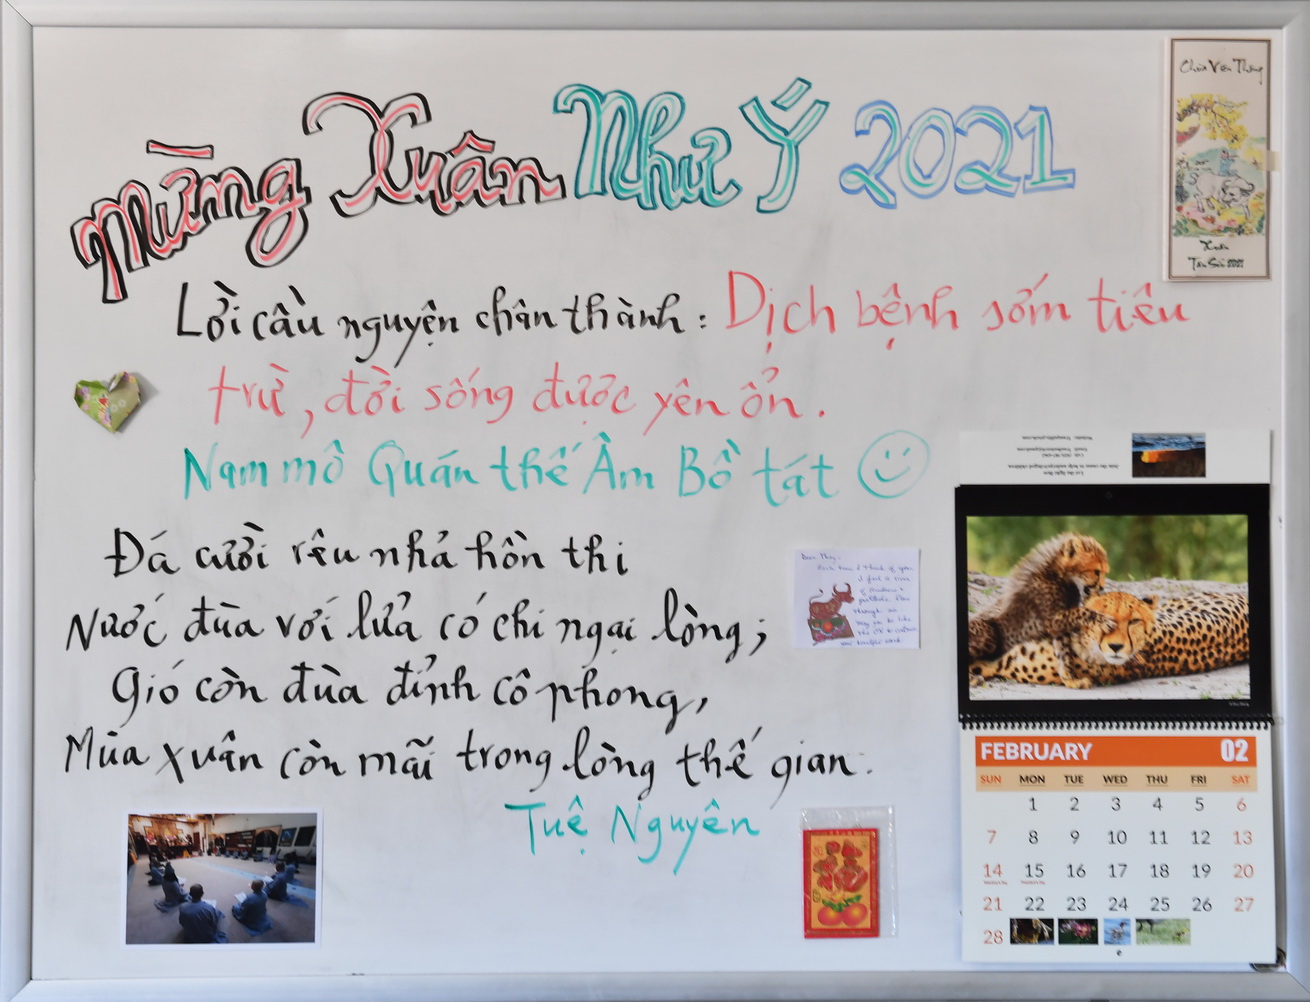 Mừng Xuân Như Ý 2021
Chùa Viên Thông
Xuân
Tân Sửu 2021
Lời cầu nguyện chân thành: Dịch bệnh sớm tiêu
trừ, đời sống được yên ổn.
Nam mô Quán thế Âm Bồ tát
Đá cười rêu nhả hồn thi
Nước đùa với lửa có chi ngại lòng;
Gió còn đùa đỉnh cô phong,
Mùa xuân còn mãi trong lòng thế gian.
Tuệ Nguyên
福
FEBRUARY 02
SUN MON TUE WED THU FRI SAT
1 2 3 4 5 6
7 8 9 10 11 12 13
14 15 16 17 18 19 20
21 22 23 24 25 26 27
28